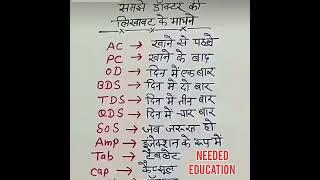 समझे डॉक्टर की
लिखावट के मायने
AC → खाने से पहले
PC → खाने के बाद
OD → दिन में एक बार
BDS → दिन में दो बार
TDS → दिन में तीन बार
QDS → दिन में चार बार
SOS → जब जरूरत हो
Amp → इंजेक्शन के रूप में
Tab → टैबलेट
Cap → कैप्सूल
NEEDED
EDUCATION